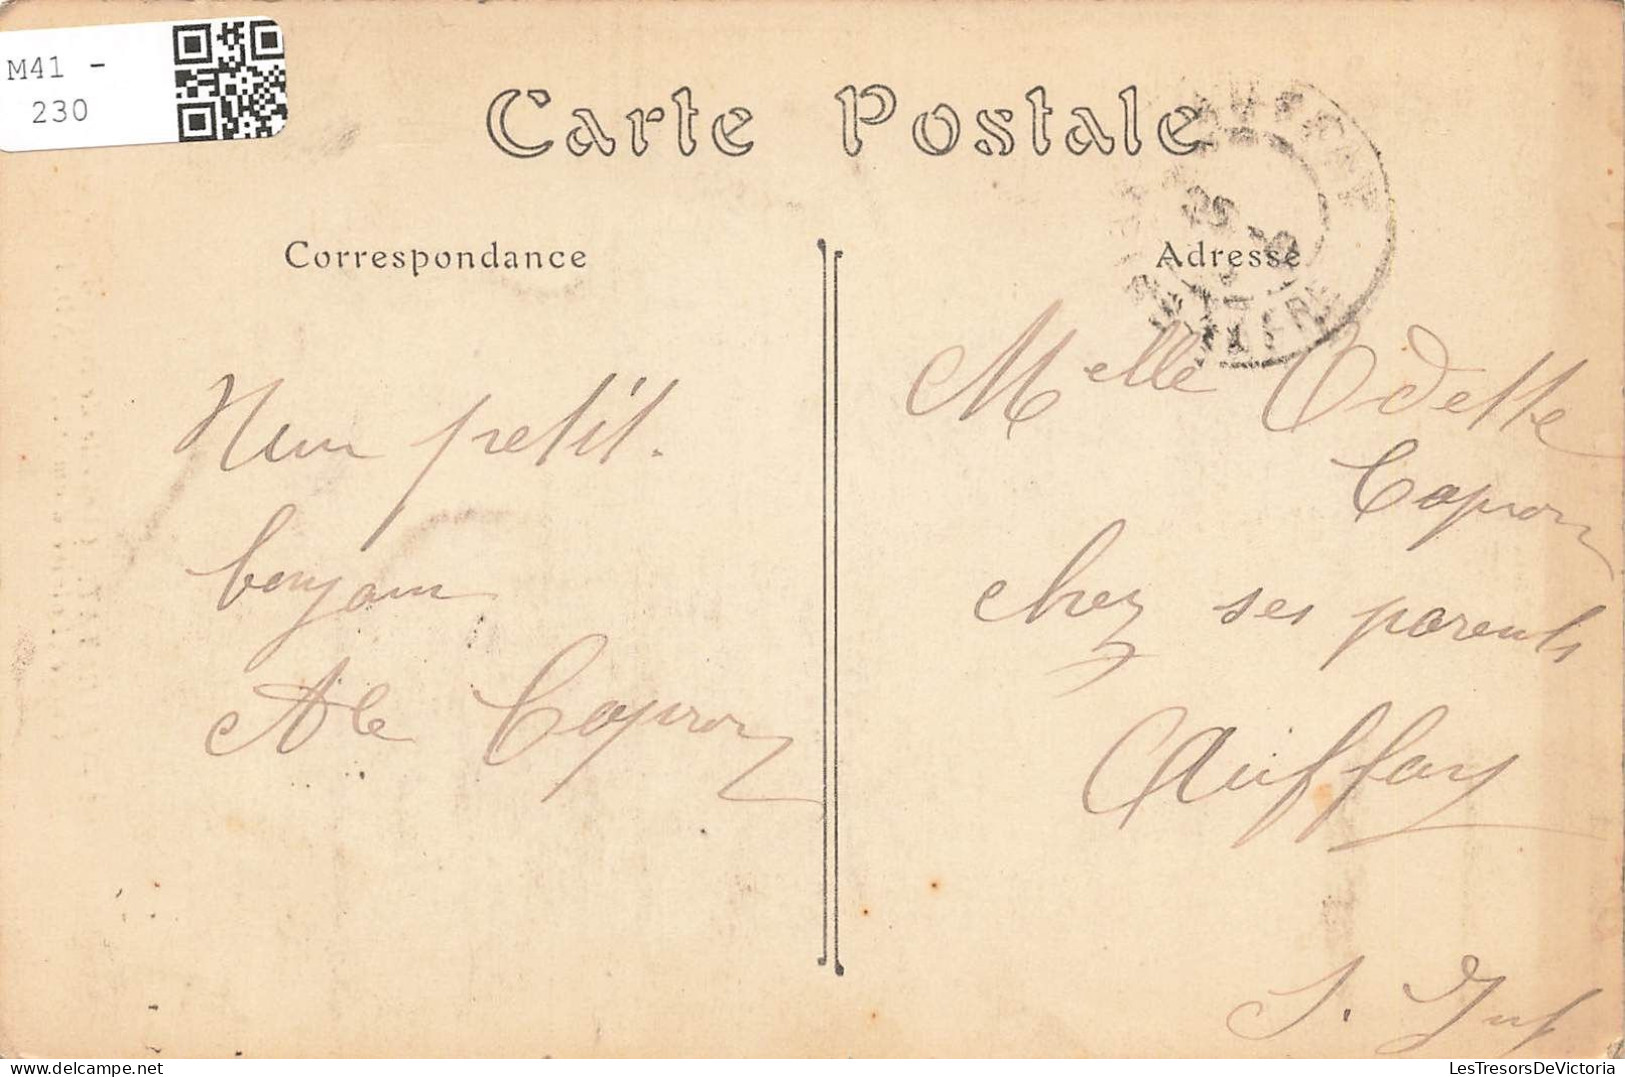 M41 -
230
Carte Postale
Correspondance
Adresse
petit
bonjour
Capron
Melle Odette
Capron
chez ses parents
Auffay
S. Inf
LesTresorsDeVictoria